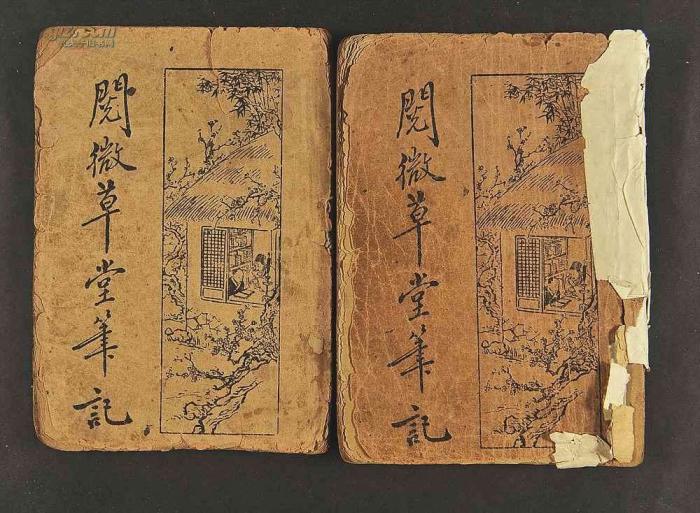 閱微草堂筆記
閱微草堂筆記